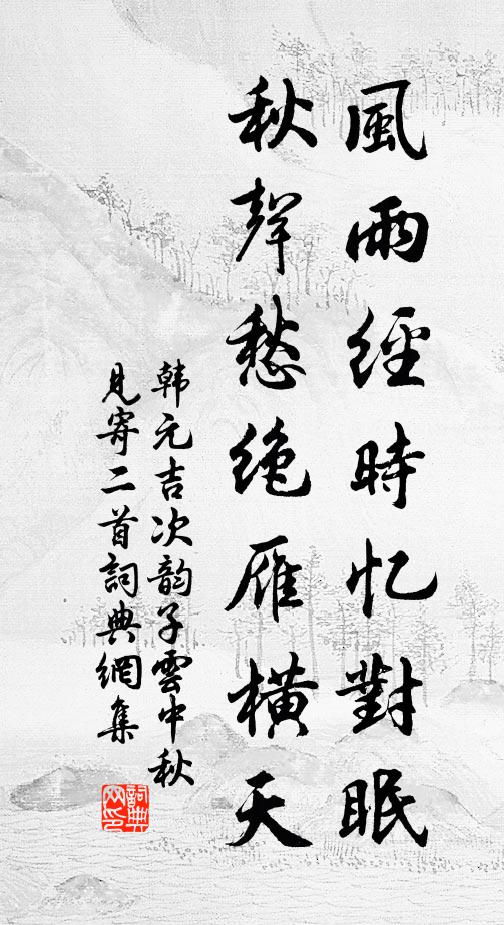 風雨經時忆對眠
秋聲愁绝雁橫天
韩元吉次韵子雲中秋
見寄二首詞典網集
詞典网印